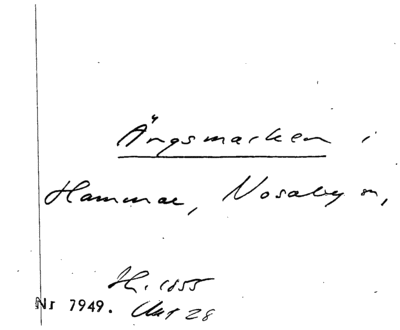 Ängsmarken i
Hammar, Nosaby sn,
Hr. 1855
Nr 7949. Akt 28